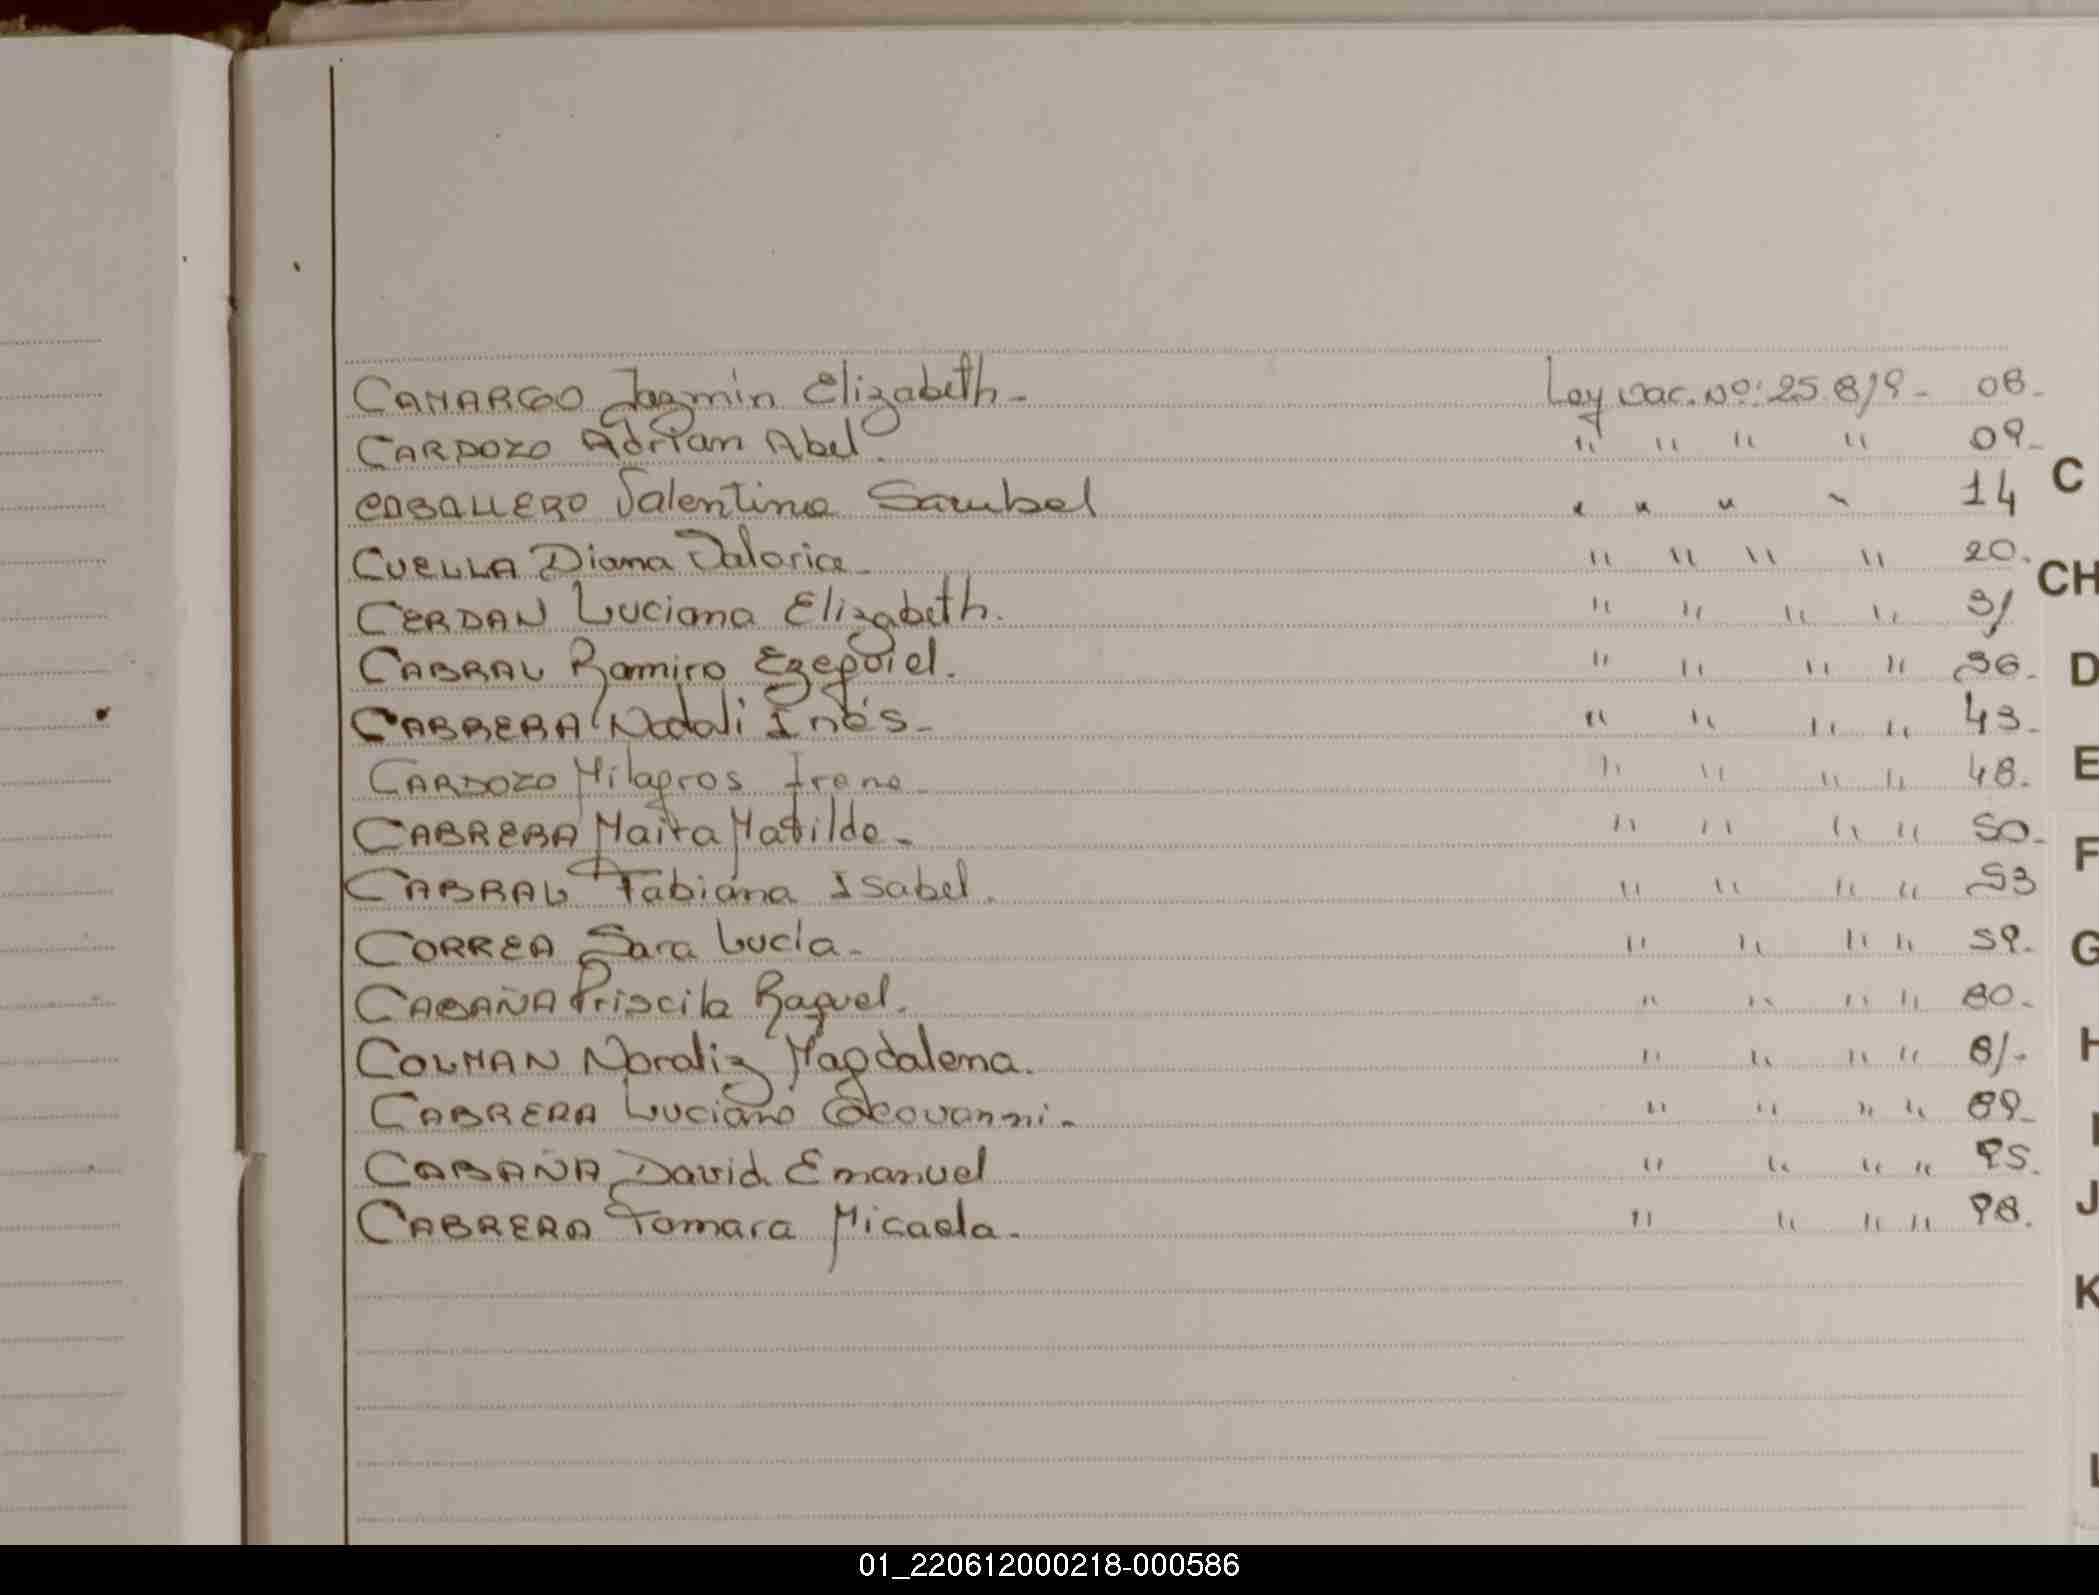 CAMARGO Jazmín Elizabeth- Ley Nac. Nº: 25.819- 08-
CARDOZO Adrian Abel. " " " " 09-
CABALLERO Valentino Saubel " " " " 14
CUELLA Diana Valeria- " " " " 20.
CERDAN Luciana Elizabeth. " " " " 31
CABRAL Ramiro Ezequiel. " " " " 36-
CABRERA Nadali Inés- " " " " 43-
CARDOZO Milagros Irene- " " " " 48-
CABRERA Maira Matilde- " " " " 50-
CABRAL Fabiana Isabel. " " " " 53
CORREA Sara Lucía- " " " " 59-
CABAÑA Priscila Raquel. " " " " 80-
COLMAN Noraliz Magdalena. " " " " 81-
CABRERA Luciano Geovanni- " " " " 89-
CABAÑA David Emanuel " " " " 95.
CABRERA Tamara Micaela- " " " " 98.
C
CH
D
E
F
G
H
I
J
K
L
01_220612000218-000586